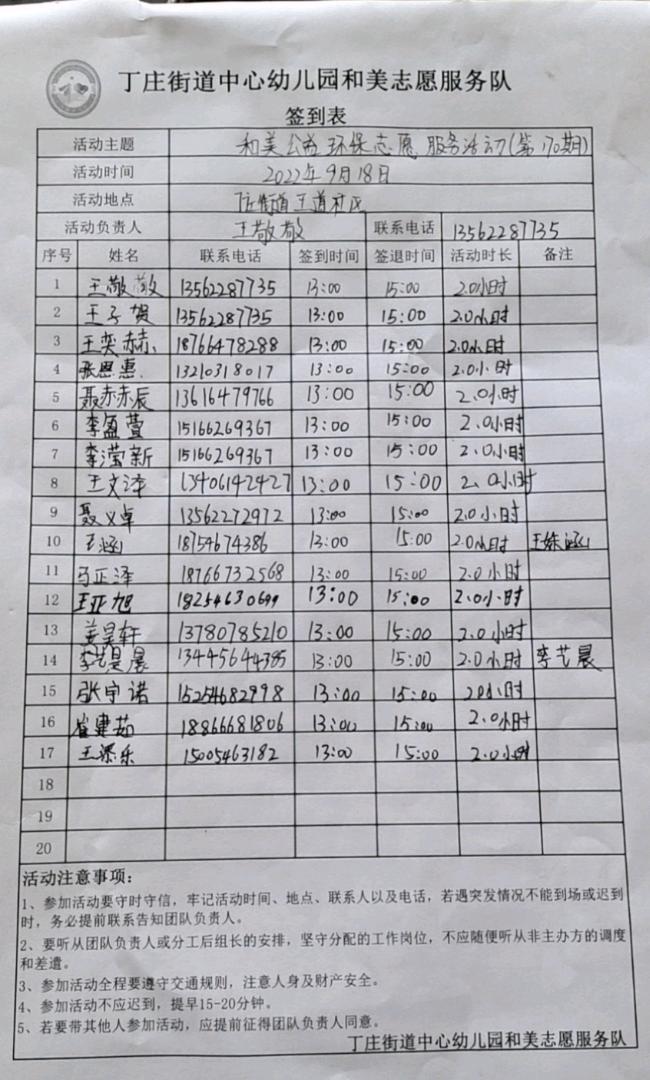 丁庄街道中心幼儿园和美志愿服务队
签到表
活动主题 和美公益环保志愿服务活动(第170期)
活动时间 2022年9月18日
活动地点 丁庄街道王道社区
活动负责人 王敬敬 联系电话 13562287735
序号 姓名 联系电话 签到时间 签退时间 活动时长 备注
1 王敬敬 13562287735 13:00 15:00 2.0小时
2 王子贺 13562287735 13:00 15:00 2.0小时
3 王奕赫 18766478288 13:00 15:00 2.0小时
4 张恩惠 13210318017 13:00 15:00 2.0小时
5 聂赤辰 13616479766 13:00 15:00 2.0小时
6 李盈萱 15166269367 13:00 15:00 2.0小时
7 李滢新 15166269367 13:00 15:00 2.0小时
8 王文泽 13406142427 13:00 15:00 2.0小时
9 聂义卓 13562272972 13:00 15:00 2.0小时
10 王涵 18754674386 13:00 15:00 2.0小时 王姝涵
11 马正泽 18766732568 13:00 15:00 2.0小时
12 王亚旭 18254630699 13:00 15:00 2.0小时
13 姜昊轩 13780785210 13:00 15:00 2.0小时
14 李艺晨 13445644385 13:00 15:00 2.0小时 李艺晨
15 张宇诺 15254682998 13:00 15:00 2.0小时
16 崔建茹 18866681806 13:00 15:00 2.0小时
17 王漯乐 15005463182 13:00 15:00 2.0小时
18
19
20
活动注意事项:
1、参加活动要守时守信,牢记活动时间、地点、联系人以及电话,若遇突发情况不能到场或迟到
时,务必提前联系告知团队负责人。
2、要听从团队负责人或分工后组长的安排,坚守分配的工作岗位,不应随便听从非主办方的调度
和差遣。
3、参加活动全程要遵守交通规则,注意人身及财产安全。
4、参加活动不应迟到,提早15-20分钟。
5、若要带其他人参加活动,应提前征得团队负责人同意。
丁庄街道中心幼儿园和美志愿服务队